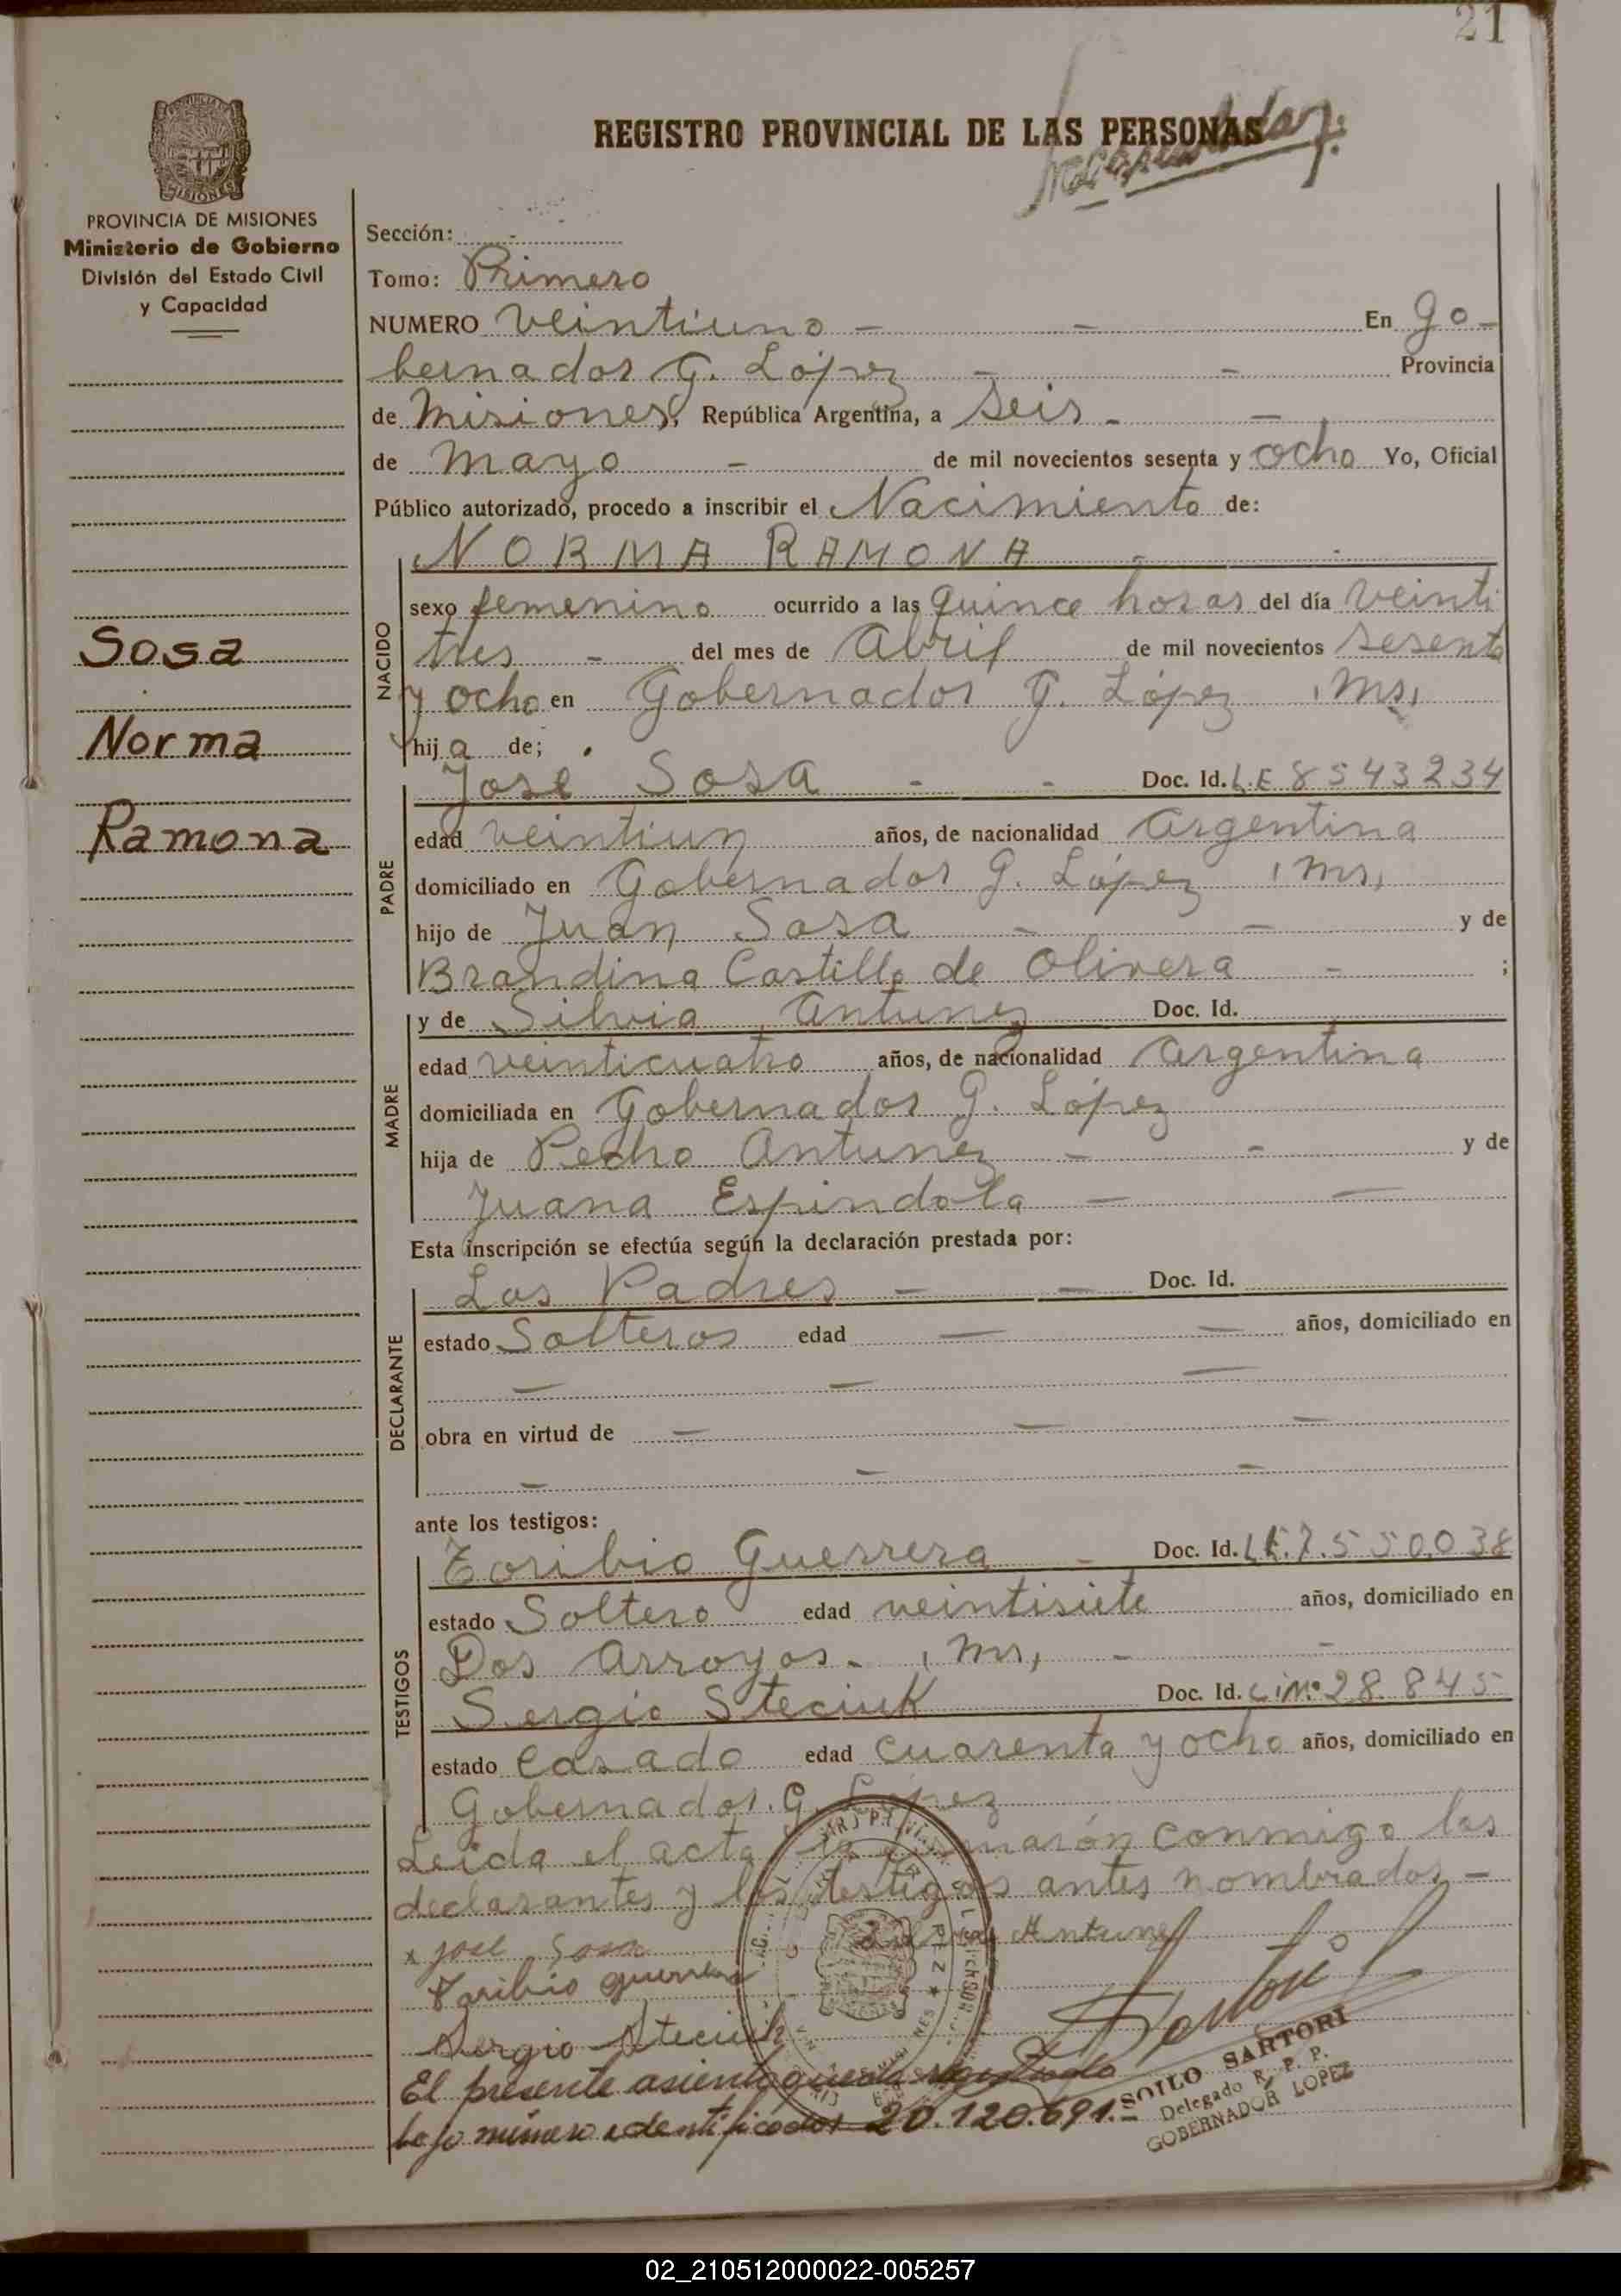 21
REGISTRO PROVINCIAL DE LAS PERSONAS
PROVINCIA DE MISIONES
Ministerio de Gobierno
División del Estado Civil
y Capacidad
Sosa
Norma
Ramona
Sección: -
Tomo: Primero
NUMERO veintiuno - - En go-
bernador G. López - - Provincia
de Misiones, República Argentina, a seis - -
de mayo - de mil novecientos sesenta y ocho Yo, Oficial
Público autorizado, procedo a inscribir el Nacimiento de:
NACIDO
NORMA RAMONA - -
sexo femenino ocurrido a las quince horas del día veinti
tres - del mes de Abril de mil novecientos sesenta
y ocho en Gobernador G. López, Ms,
hija de;
PADRE
José Sosa - - Doc. Id. L.E 8543234
edad veintiun años, de nacionalidad Argentina
domiciliado en Gobernador G. López, Ms,
hijo de Juan Sosa - - y de
Brandina Castillo de Olivera - ;
MADRE
y de Silvia Antunez Doc. Id.
edad veinticuatro años, de nacionalidad Argentina
domiciliada en Gobernador G. López
hija de Pedro Antunez - - y de
Juana Espindola - -
Esta inscripción se efectúa según la declaración prestada por:
DECLARANTE
Los Padres - - Doc. Id.
estado Solteros edad - - años, domiciliado en
- - -
obra en virtud de - - -
- - -
ante los testigos:
TESTIGOS
Toribio Guerrera - Doc. Id. L.E.7.550.038
estado Soltero edad veintisiete años, domiciliado en
Dos Arroyos - , Ms, - -
Sergio Steciuk Doc. Id. C.I.M. 28.845
estado Casado edad cuarenta y ocho años, domiciliado en
Gobernador G. López
Leída el acta la firmarón conmigo los
declarantes y los testigos antes nombrados -
x José Sosa Antunez
Toribio guerrera
Sergio Steciuk
Sartori
El presente asiento queda registrado
bajo número identificador 20.120.691.-
SOILO SARTORI
Delegado R. P. P.
GOBERNADOR LOPEZ
02_210512000022-005257